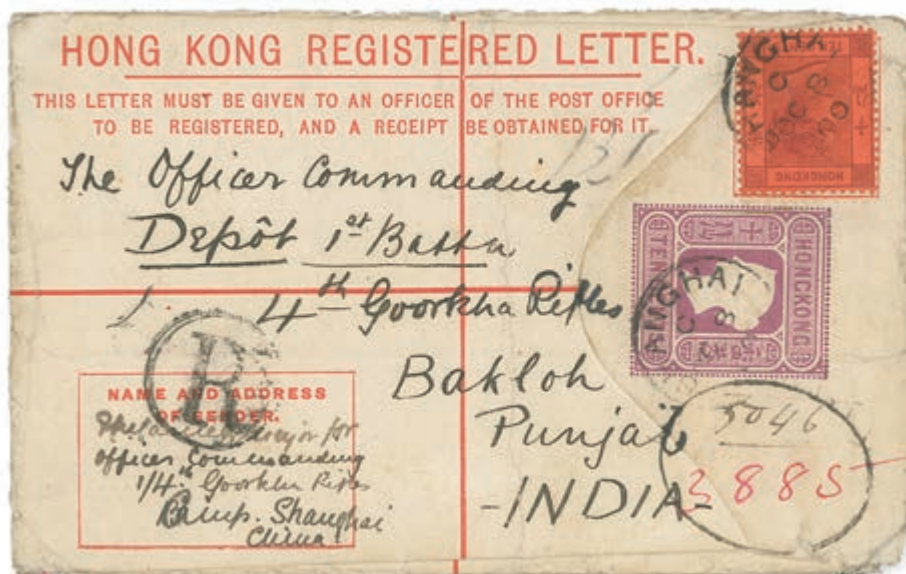 HONG KONG REGISTERED LETTER.
THIS LETTER MUST BE GIVEN TO AN OFFICER OF THE POST OFFICE
TO BE REGISTERED, AND A RECEIPT BE OBTAINED FOR IT.
The Officer Commanding
Depôt 1st Battn
4th Goorkha Rifles
Bakloh
Punjab
-INDIA-
R
NAME AND ADDRESS
OF SENDER.
Major for
Officer Commanding
1/4th Goorkha Rifles
Camp. Shanghai
China
HONGKONG
TEN
HONGKONG
5046
3885